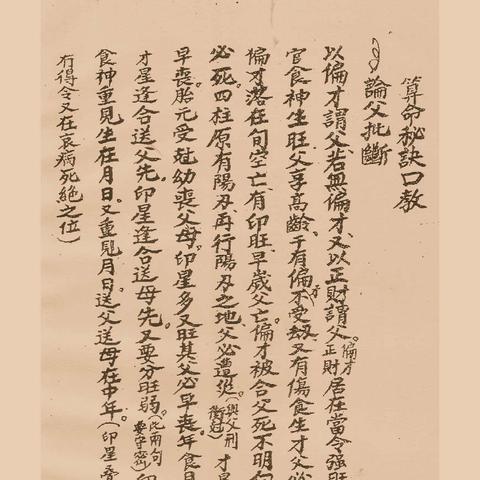 算命秘訣口教
論父批斷
以偏才謂父若無偏才又以正財謂父。偏才正財居在當令强旺
官食神生旺父享高齡。干有偏才不受刼又有傷食生才父必
偏才落在旬空亡有印旺早歲父亡偏才被合父死不明
必死。四柱原有陽刃再行陽刃之地父必遭災。(與父刑衝尅)才星
早喪胎元受尅幼喪父母。印星多又旺其父必早喪。年食月
才星逢合送父先。印星逢合送母先。又要分旺弱。(此兩句要守密)印
食神重見坐在月日。又重見月日送父送母在中年。(印星
有得令又在衰病死絕之位)